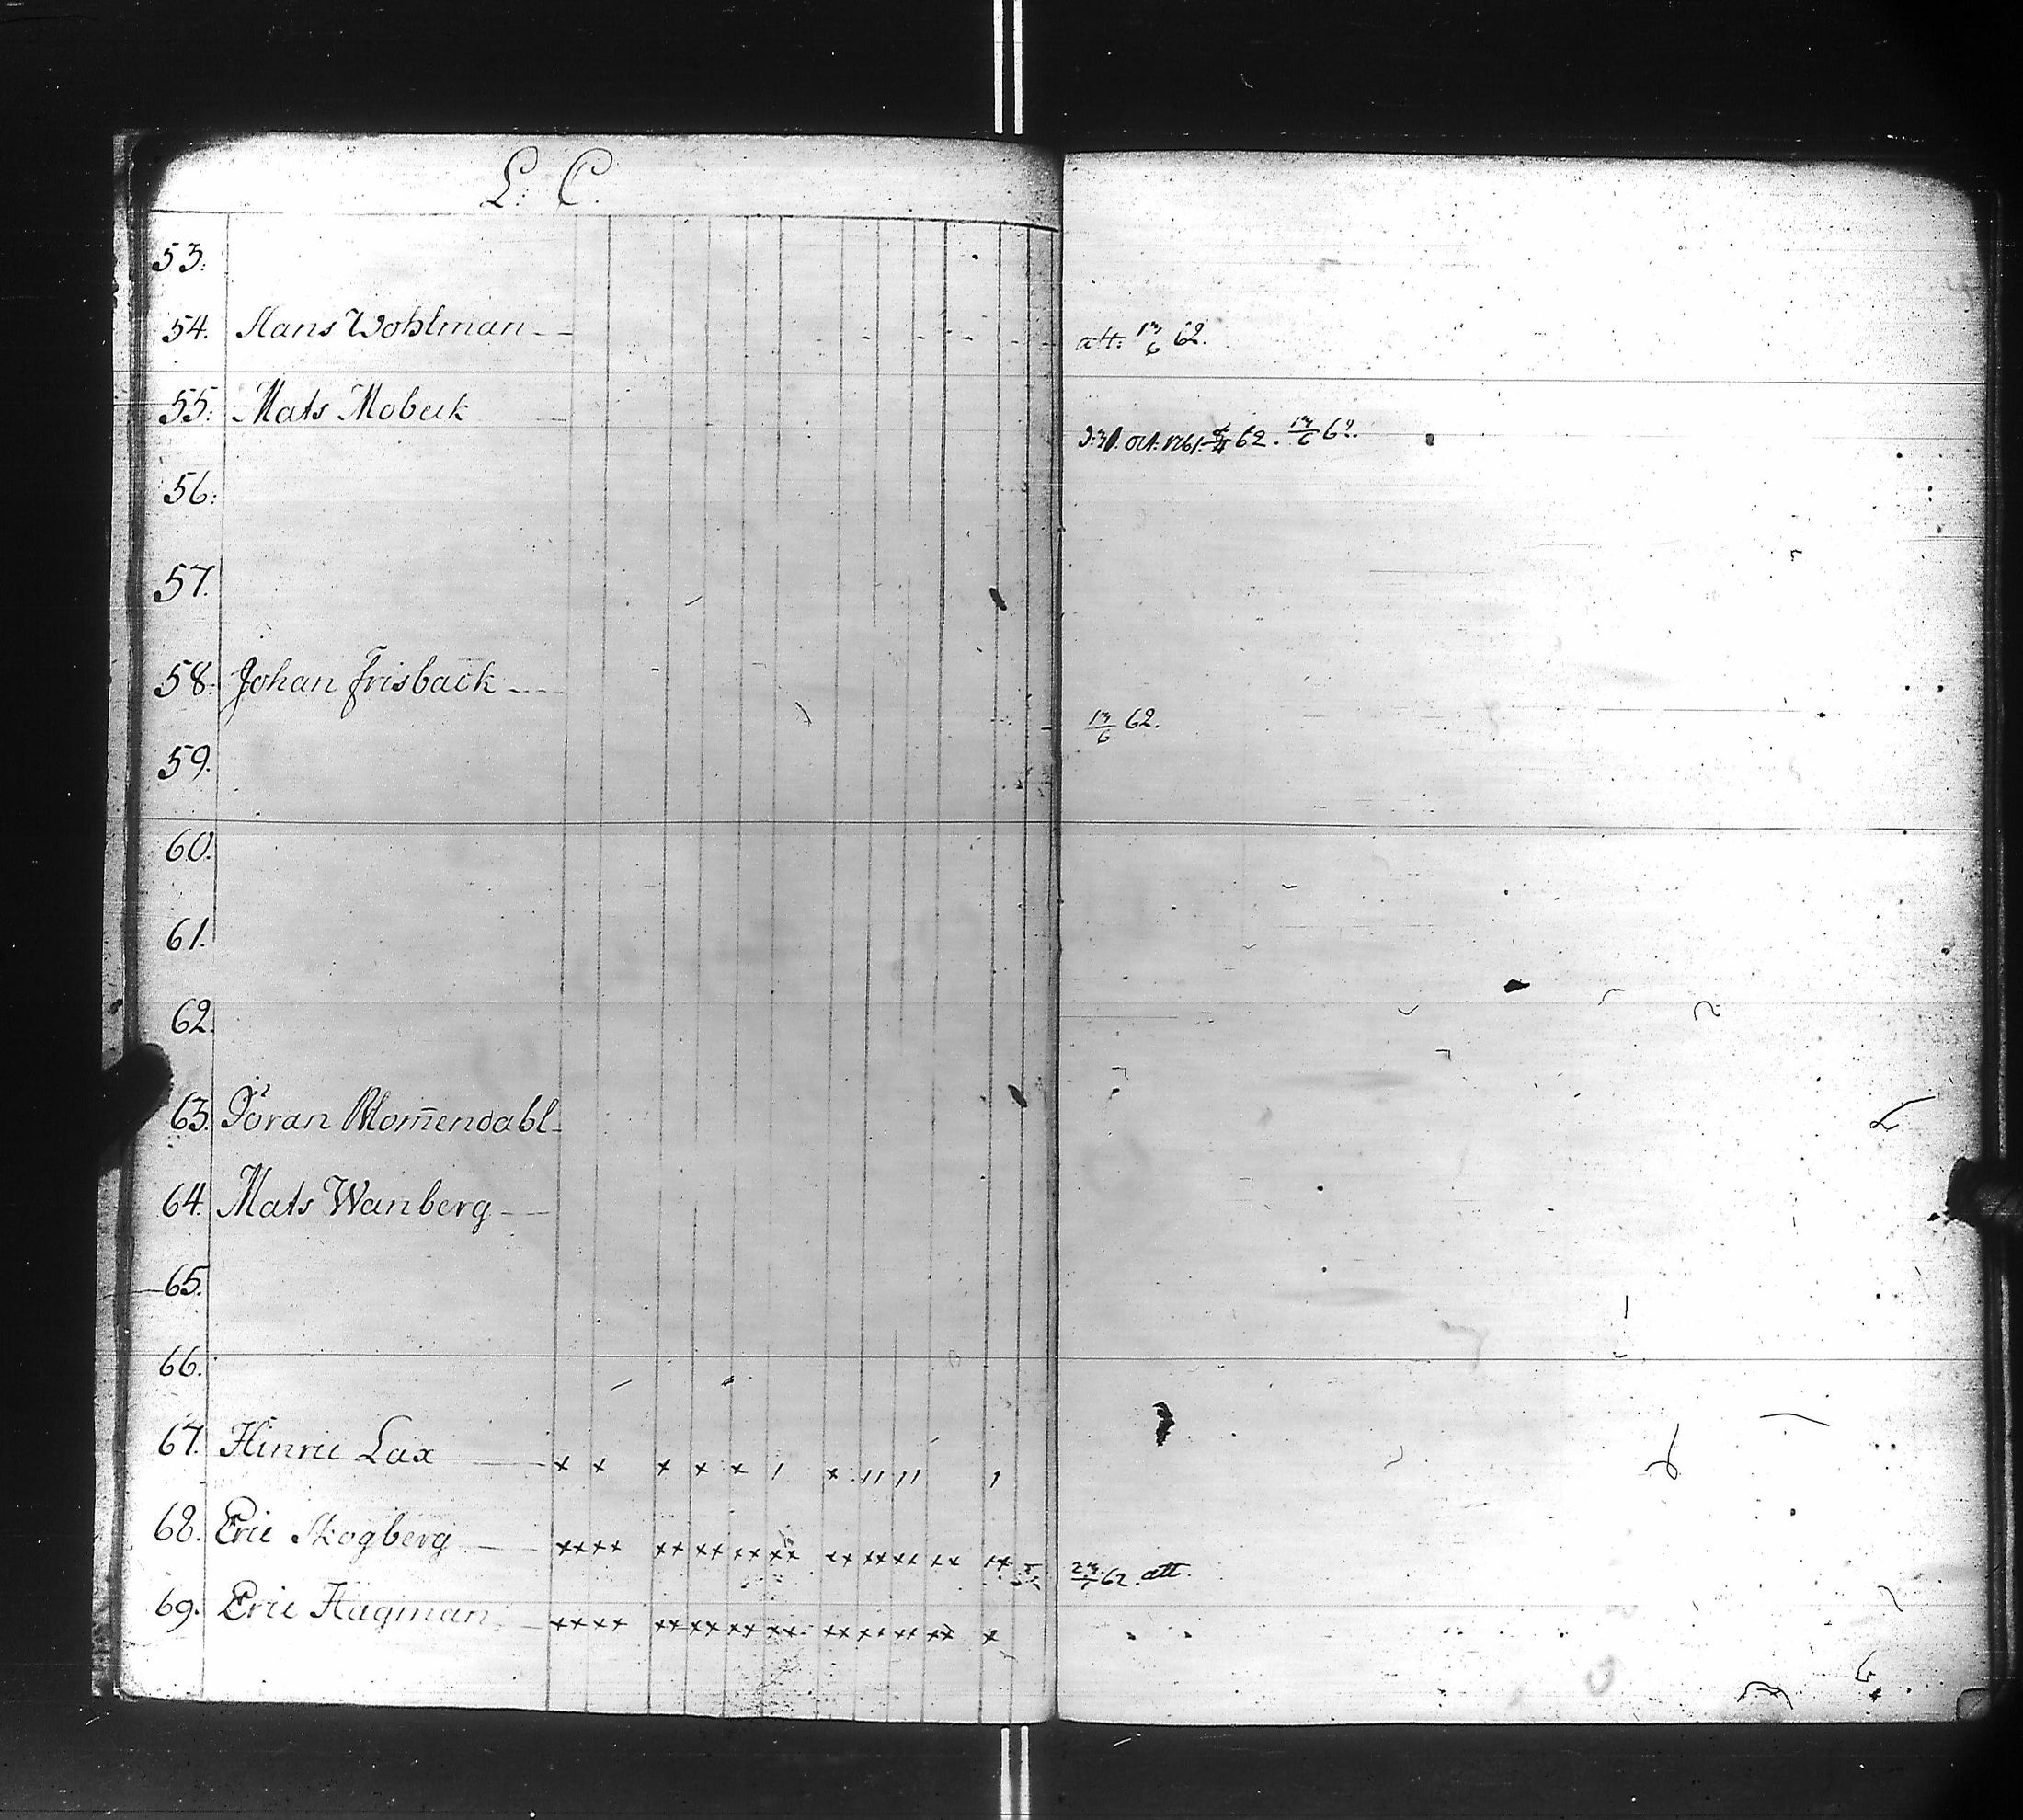 L. C.
53:
54. Hans Wohlman att: 13/6 62.
55: Mats Mobeck d: 31. oct: 1761. 62. 13/6 62.
56:
57.
58: Johan Frisback 13/6 62.
59.
60.
61.
62.
63. Jöran Blom̄endahl
64. Mats Wanberg
65.
66.
67. Hinric Lax x x x x x / x // // /
68. Eric Skogberg xx xx xx xx xx xx xx xx xx xx 62. att.
69. Eric Hagman xx xx xx xx xx xx xx xx xx xx x